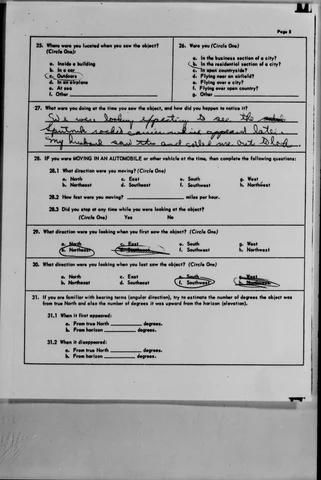 Page 5
25. Where were you located when you saw the object?
(Circle One):
a. Inside a building
b. In a car
c. Outdoors
d. In an airplane
e. At sea
f. Other
26. Were you (Circle One)
a. In the business section of a city?
b. In the residential section of a city?
c. In open countryside?
d. Flying near an airfield?
e. Flying over a city?
f. Flying over open country?
g. Other
27. What were you doing at the time you saw the object, and how did you happen to notice it?
We were looking expecting to see the
Sputnik rocket carrier and it appeared late.
My husband saw this and called me out to look.
28. IF you were MOVING IN AN AUTOMOBILE or other vehicle at the time, then complete the following questions:
28.1 What direction were you moving? (Circle One)
a. North c. East e. South g. West
b. Northeast d. Southeast f. Southwest h. Northwest
28.2 How fast were you moving? miles per hour.
28.3 Did you stop at any time while you were looking at the object?
(Circle One) Yes No
29. What direction were you looking when you first saw the object? (Circle One)
a. North c. East e. South g. West
b. Northeast d. Southeast f. Southwest h. Northwest
30. What direction were you looking when you last saw the object? (Circle One)
a. North c. East e. South g. West
b. Northeast d. Southeast f. Southwest h. Northwest
31. If you are familiar with bearing terms (angular direction), try to estimate the number of degrees the object was
from true North and also the number of degrees it was upward from the horizon (elevation).
31.1 When it first appeared:
a. From true North degrees.
b. From horizon degrees.
31.2 When it disappeared:
a. From true North degrees.
b. From horizon degrees.